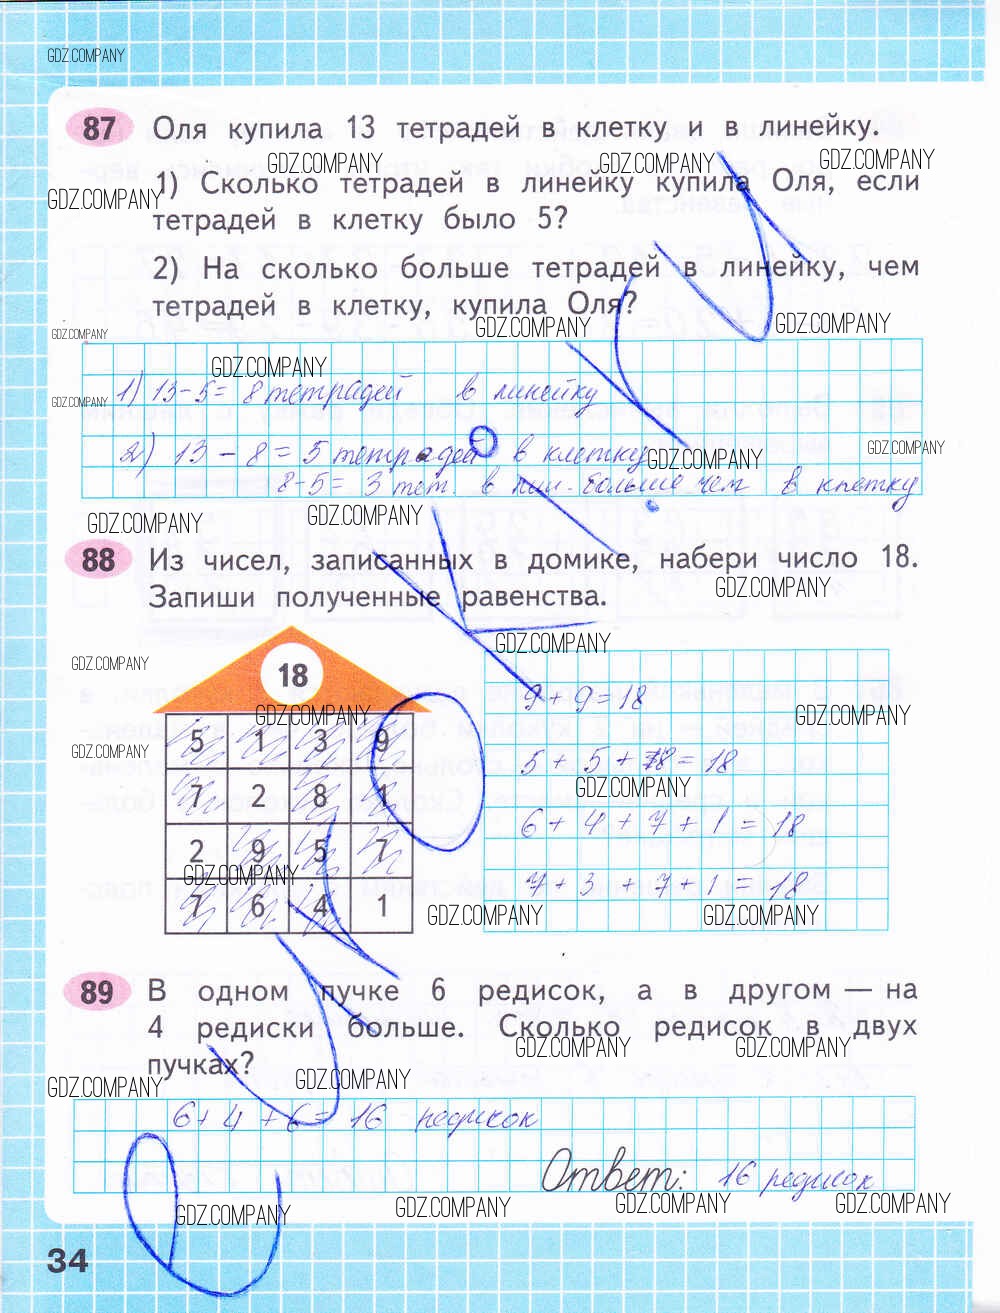 GDZ.COMPANY
87 Оля купила 13 тетрадей в клетку и в линейку.
GDZ.COMPANY GDZ.COMPANY GDZ.COMPANY
1) Сколько тетрадей в линейку купила Оля, если
GDZ.COMPANY
тетрадей в клетку было 5?
2) На сколько больше тетрадей в линейку, чем
тетрадей в клетку, купила Оля?
GDZ.COMPANY GDZ.COMPANY GDZ.COMPANY
GDZ.COMPANY
1) 13-5= 8 тетрадей в линейку
GDZ.COMPANY
2) 13 - 8 = 5 тетрадей в клетку
GDZ.COMPANY GDZ.COMPANY
8-5= 3 тет. в лин. больше чем в клетку
GDZ.COMPANY GDZ.COMPANY
88 Из чисел, записанных в домике, набери число 18.
GDZ.COMPANY
Запиши полученные равенства.
GDZ.COMPANY
GDZ.COMPANY
18
GDZ.COMPANY GDZ.COMPANY
5 1 3 9
GDZ.COMPANY
7 2 8 1
2 9 5 7
GDZ.COMPANY
7 6 4 1
9+9=18
5+5+8=18
GDZ.COMPANY
6+4+7+1=18
7+3+7+1=18
GDZ.COMPANY GDZ.COMPANY
89 В одном пучке 6 редисок, а в другом — на
4 редиски больше. Сколько редисок в двух
GDZ.COMPANY GDZ.COMPANY
пучках?
GDZ.COMPANY GDZ.COMPANY
6+4+6= 16 редисок
Ответ: 16 редисок
GDZ.COMPANY GDZ.COMPANY GDZ.COMPANY GDZ.COMPANY
34